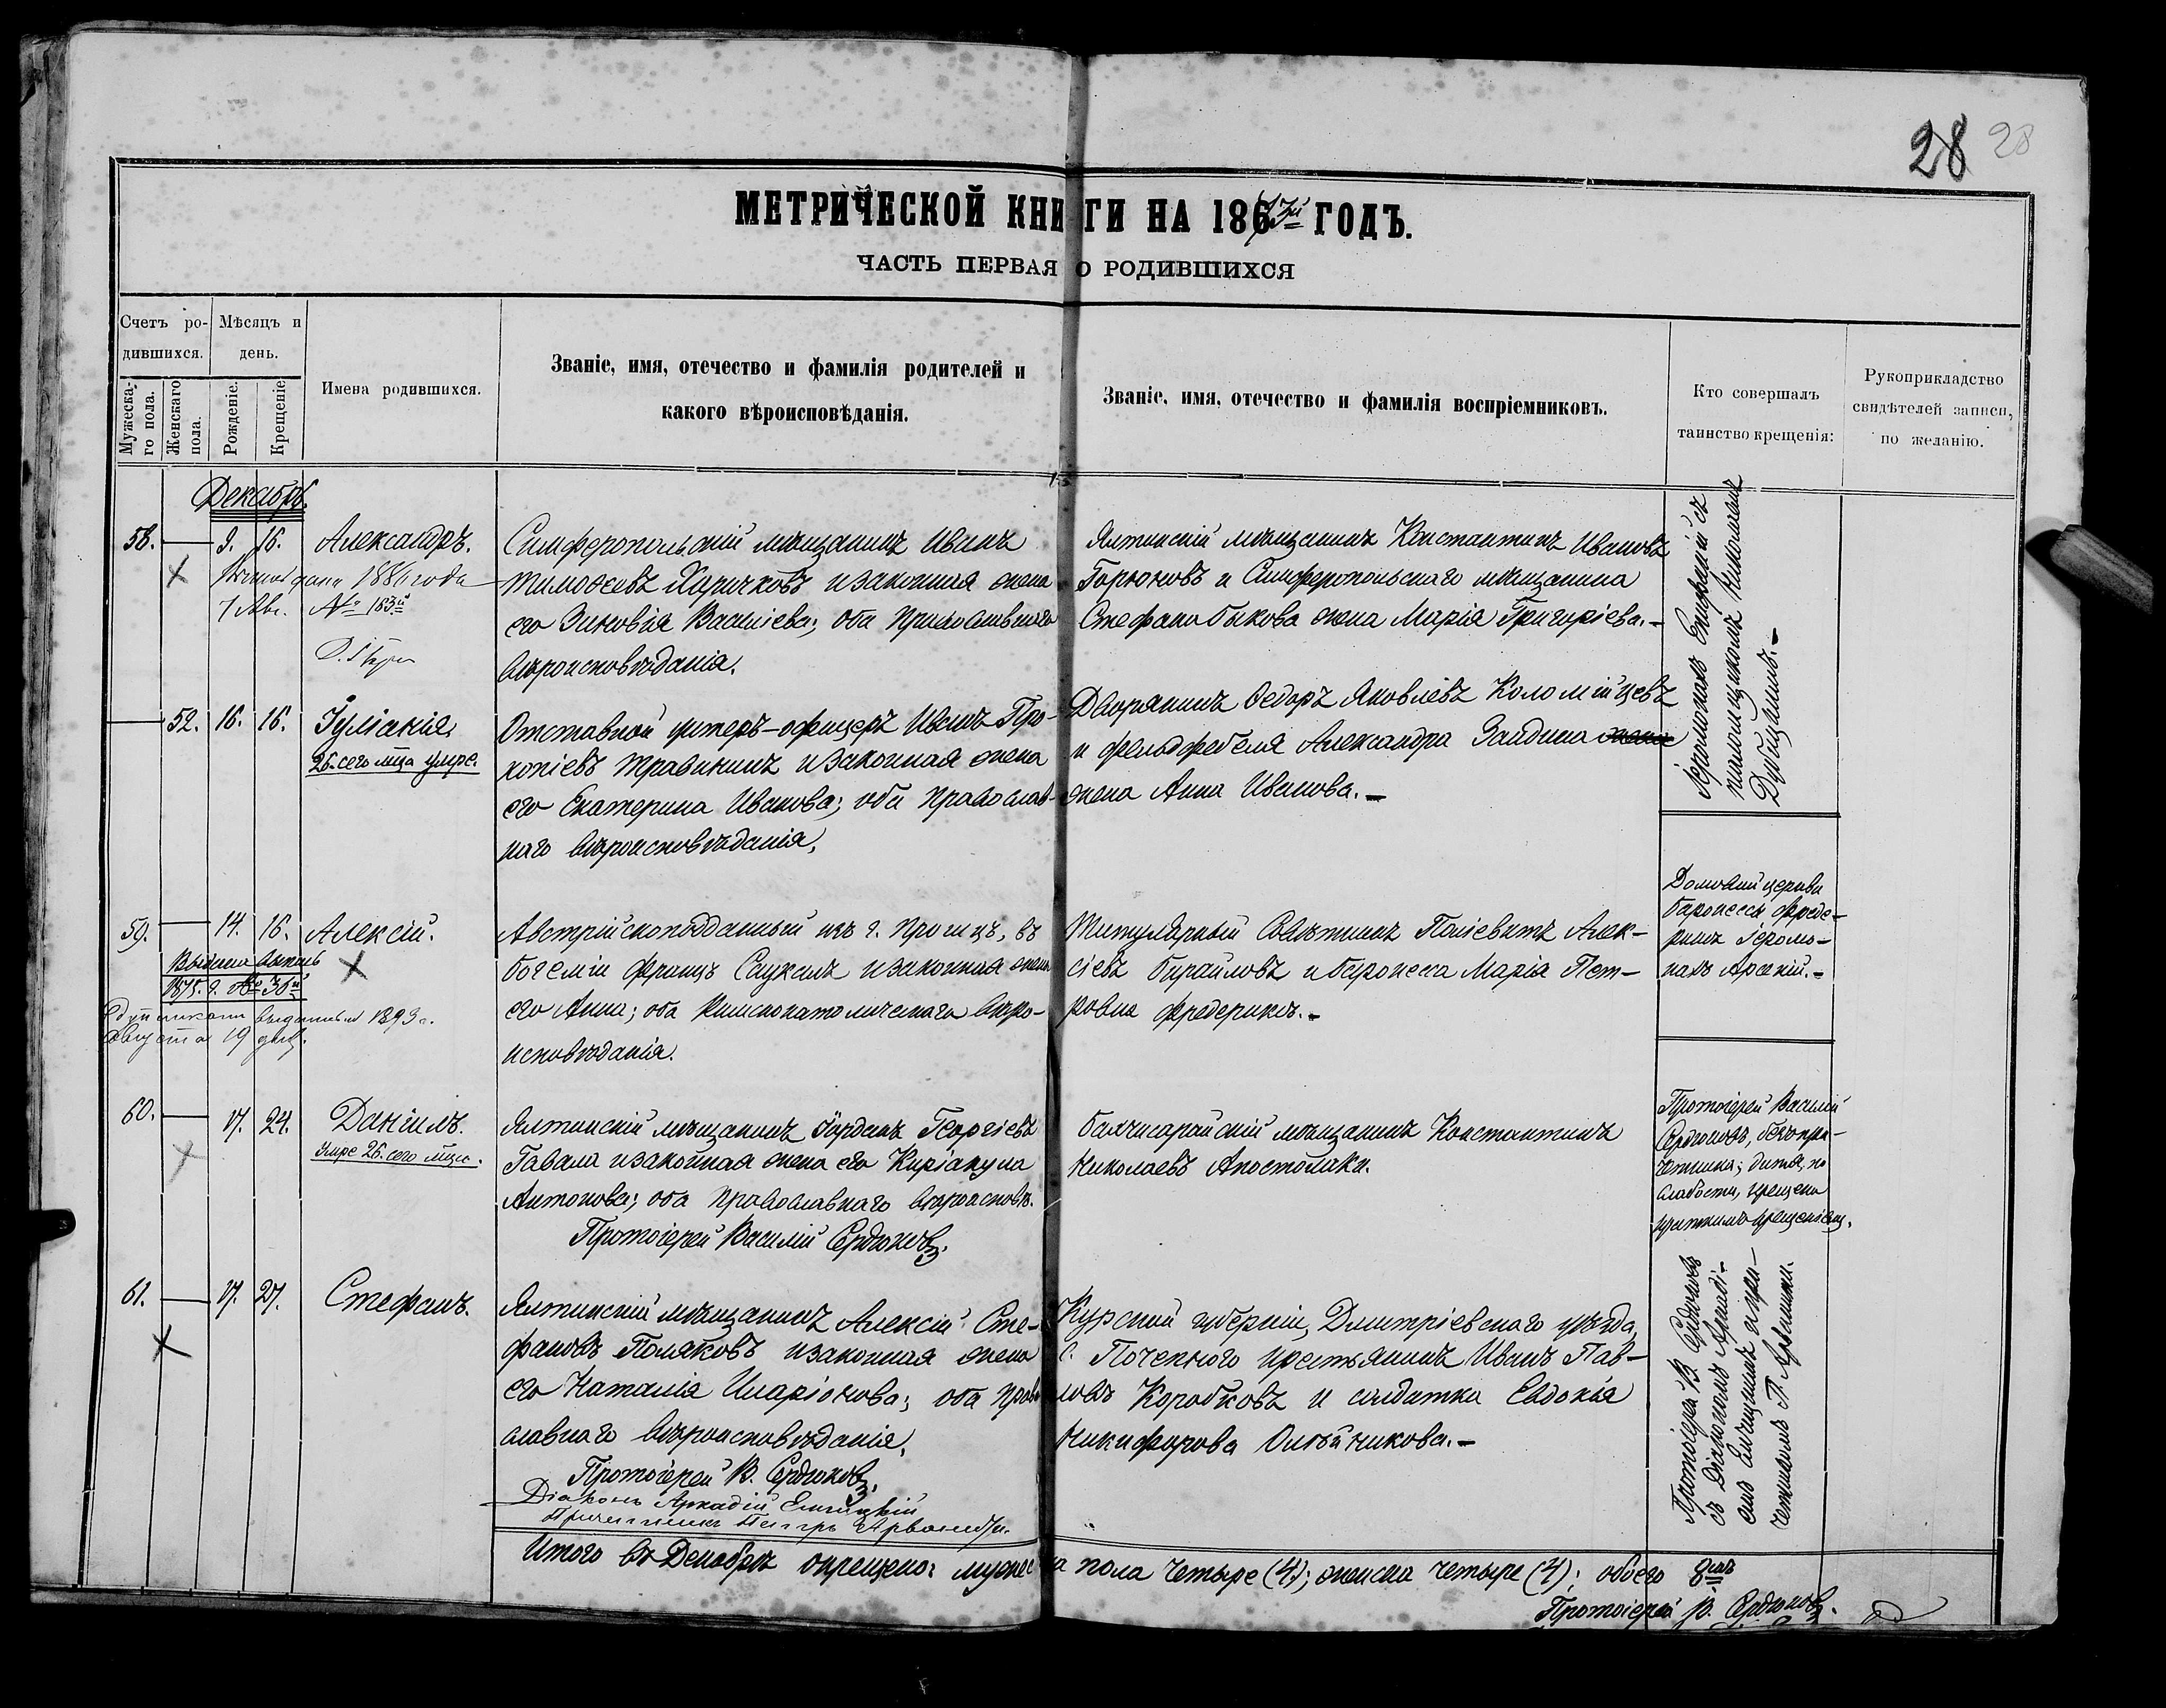 28 28
МЕТРИЧЕСКОЙ КНИГИ НА 1873й ГОДЪ.
ЧАСТЬ ПЕРВАЯ О РОДИВШИХСЯ
Счетъ ро-
дившихся.
Мужеска-
го пола.
Женскаго
пола.
Мѣсяцъ и
день.
Рожденіе.
Крещеніе.
Имена родившихся.
Званіе, имя, отечество и фамилія родителей и
какого вѣроисповѣданія.
Званіе, имя, отечество и фамилія воспріемниковъ.
Кто совершалъ
таинство крещенія:
Рукоприкладство
свидѣтелей записи,
по желанію.
Декабрь.
58. 9. 16. Александръ.
дана 1886 года
7 Авг. № 183й
Симферопольскій мѣщанинъ Иванъ
Тимоѳеевъ Харичковъ и законная жена
его Зиновія Васильева; оба Православнаго
вѣроисповѣданія.
Ялтинскій мѣщанинъ Константинъ Ивановъ
Горюновъ и Симферопольскаго мѣщанина
Стефана Быкова жена Марія Григоріева.-
Іеромонахъ Епифаній съ
Дубицкимъ.-
52. 16. 16. Іуліанія
26. сего мца умре.
Отставной унтеръ-офицеръ Иванъ Про-
копіевъ Травинъ и законная жена
его Екатерина Иванова; оба православ-
наго вѣроисповѣданія.
Дворянинъ Ѳедоръ Яковлевъ Коломійцевъ
и фельдфебеля Александра Зайдина жена
жена Анна Иванова.-
59. 14. 16. Алексій.
Выдана выпись
1875. г. № 36й
выдана 1893 г.
Августа 19 дня.
Австрійскоподданный изъ г. Пригицъ, въ
Богеміи Францъ Саукалъ и законная жена
его Анна; оба Римскокатолическаго вѣро-
исповѣданія.
Титулярный Совѣтникъ Поліевктъ Алек-
сіевъ Бирайловъ и баронесса Марія Пет-
ровна Фредериксъ.-
Домовой церкви
баронессы Фреде-
риксъ Іеромо-
нахъ Арсеній.-
60. 17. 24. Даніилъ.
Умре 26. сего мца.
Ялтинскій мѣщанинъ Іорданъ Георгіевъ
Гавала и законная жена его Киріакула
Антонова; оба православнаго вѣроисповѣ.
Протоіерей Василій Сердюковъ.
Бахчисарайскій мѣщанинъ Константинъ
Николаевъ Апостолаки.
Протоіерей Василій
Сердюковъ, безъ при-
четника; дитя, по
слабости, крещено
краткимъ крещеніемъ.
61. 17. 27. Стефанъ.
Ялтинскій мѣщанинъ Алексій Сте-
фановъ Поляковъ и законная жена
его Наталія Иларіонова; оба право-
славнаго вѣроисповѣданія.
Протоіерей В. Сердюковъ.
Діаконъ Аркадій Ельчицкій
Причетникъ Петръ Арваниди.
Курской губерніи, Дмитріевскаго уѣзда,
с. Поченного крестьянинъ Иванъ Пав-
ловъ Коробковъ и солдатка Евдокія
Никифорова Олейникова.-
Протоіерей В. Сердюковъ
съ Діакономъ Аркаді-
емъ Ельчицкимъ и при-
четникомъ П. Арваниди.
Итого въ Декабрѣ окрещено: мужеска пола четыре (4); женска четыре (4); обоего 8мь
Протоіерей В. Сердюковъ.